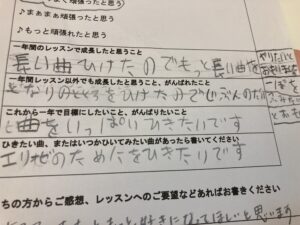 よく頑張ったと思う
♪まぁまぁ頑張ったと思う
♪もっと頑張れたと思う
一年間のレッスンで成長したと思うこと
長い曲ひけたのでもっと長い曲
一年間レッスン以外でも成長したと思うこと、がんばれたこと
となりのトトロをひけたのでじぶんのだ
これから一年で目標にしたいこと、がんばりたいこと
曲をいっぱいひきたいです
ひきたい曲、またはいつかひいてみたい曲があったら書いてください
エリゼのためにをひきたいです
ちの方からご感想、レッスンへのご要望などあればお書きください
好きになってほしいと思います